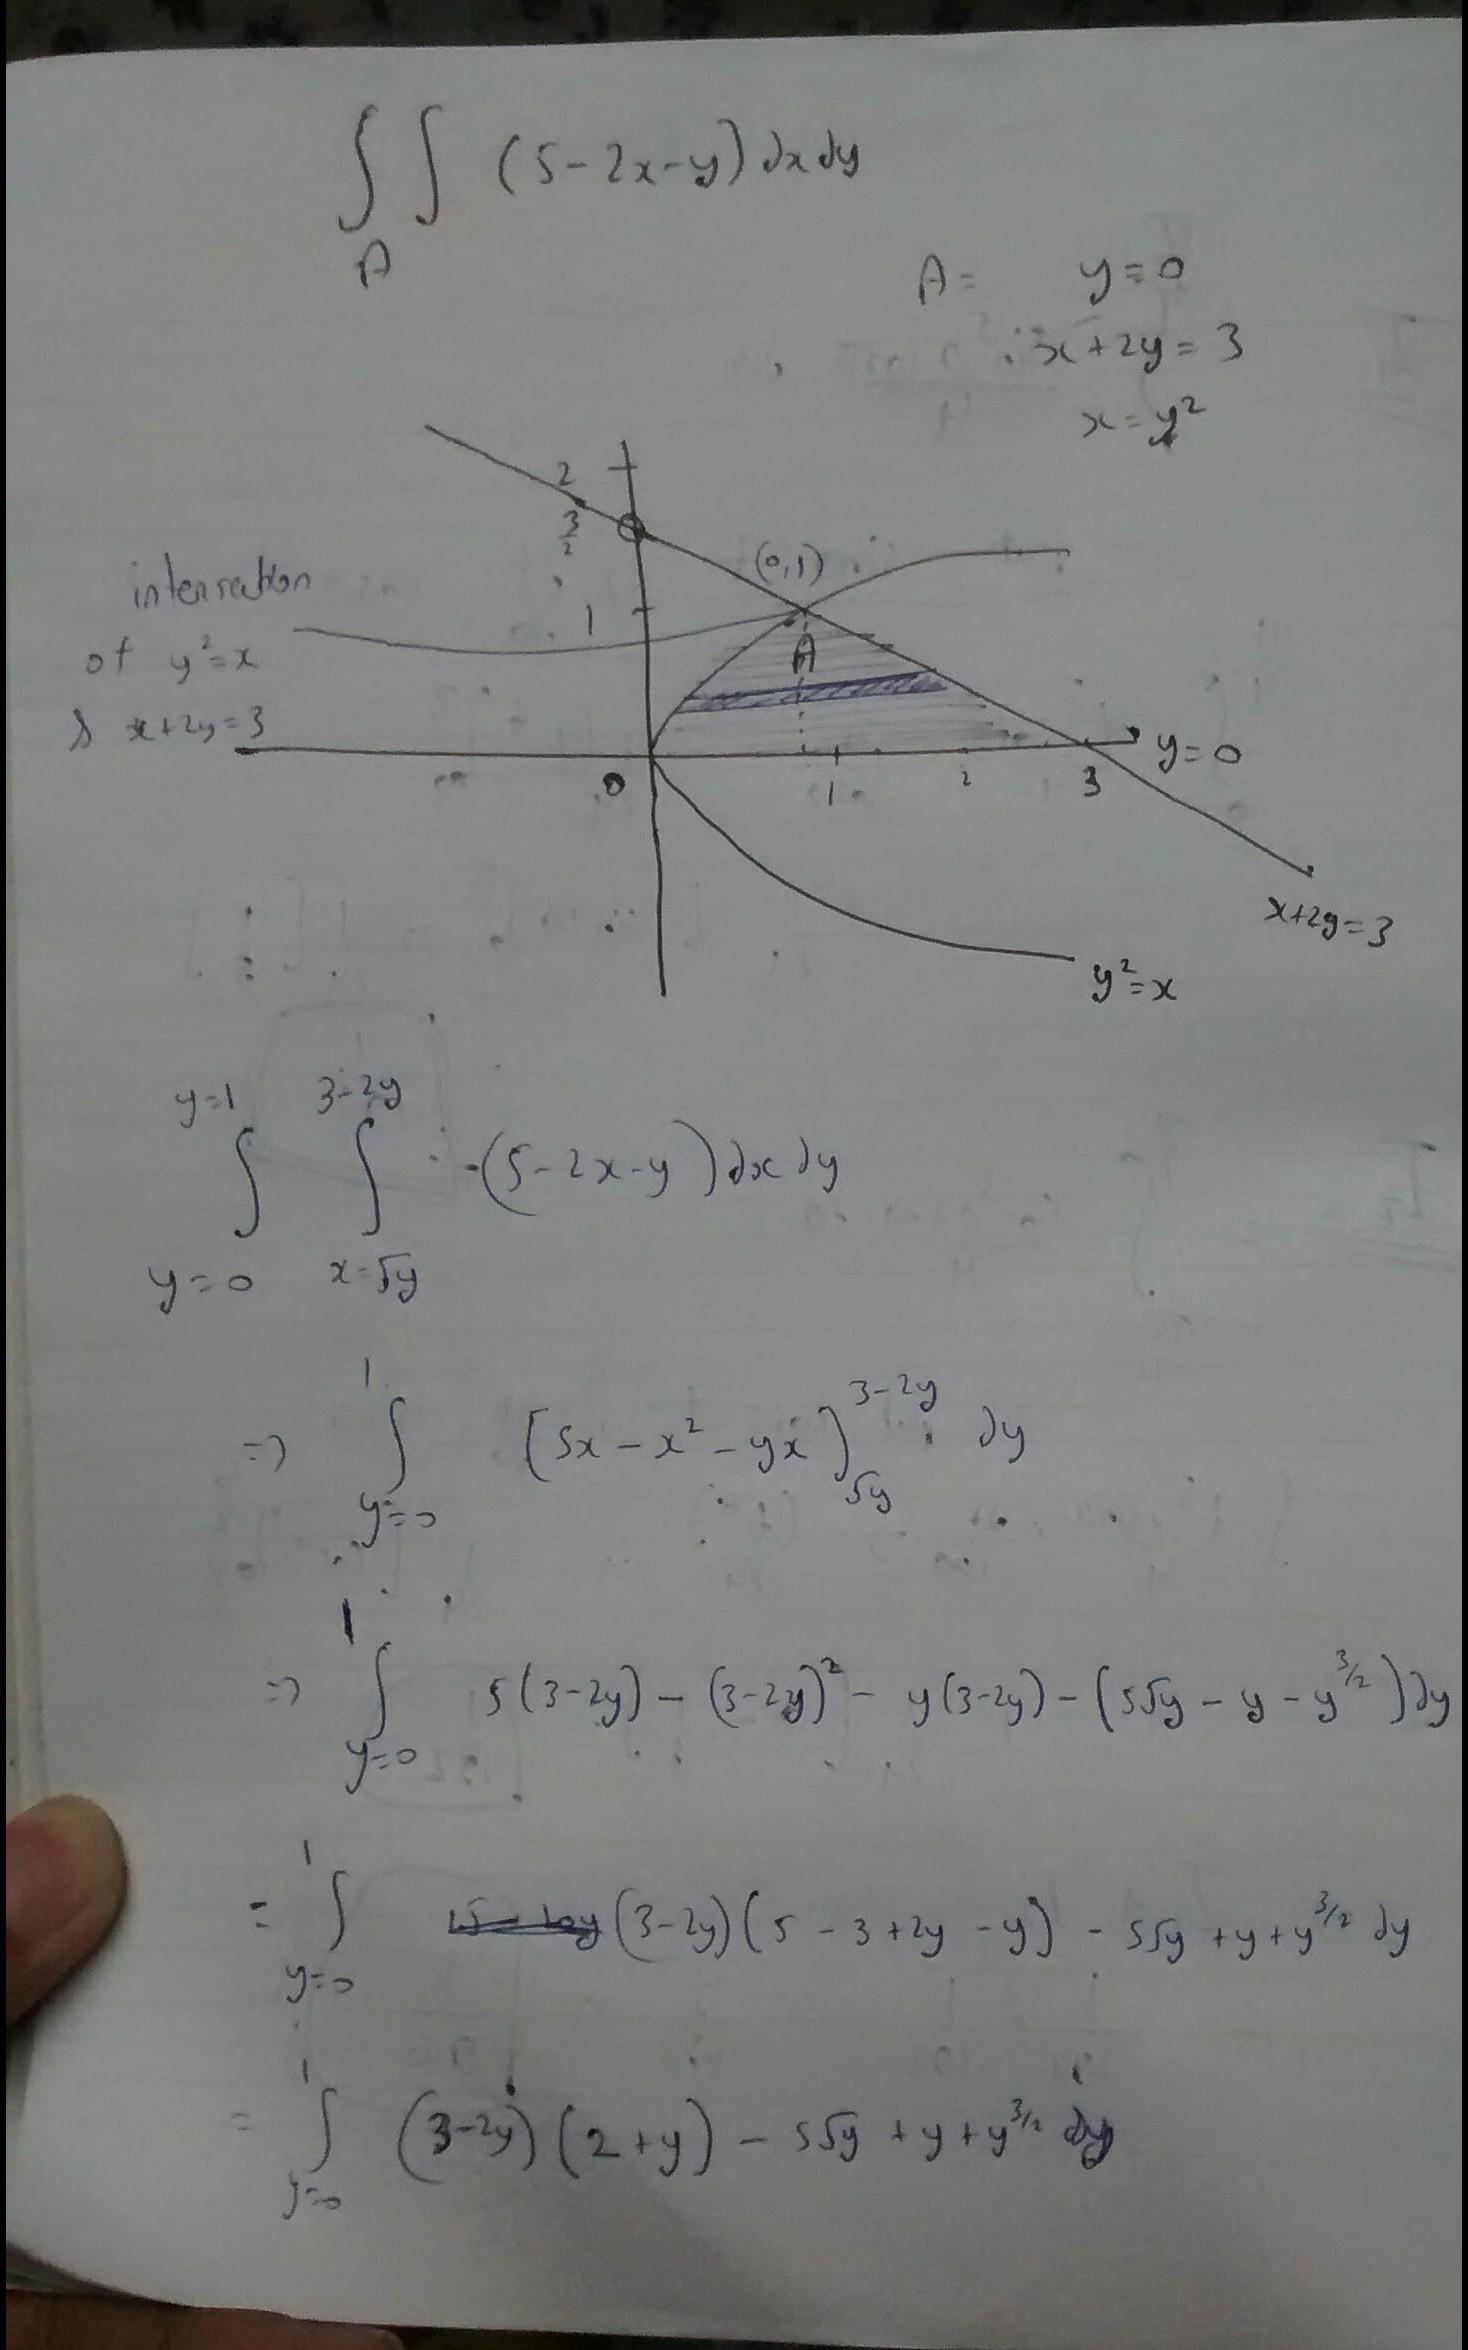 ∫∫ (5-2x-y)dxdy
A
A= y=0
x+2y=3
x=y²
2
3/2
(0,1)
interration
1
A
of y²=x
& x+2y=3
y=0
0 1 2 3
x+2y=3
y²=x
y=1 3-2y
∫ ∫ -(5-2x-y)dxdy
y=0 x=√y
1 3-2y
=> ∫ [5x-x²-yx] dy
y=0 √y
1
=> ∫ 5(3-2y)-(3-2y)²-y(3-2y)-(5√y-y-y^3/2)dy
y=0
1
= ∫ (3-2y)(5-3+2y-y)-5√y+y+y^3/2 dy
y=0
1
= ∫ (3-2y)(2+y)-5√y+y+y^3/2 dy
y=0